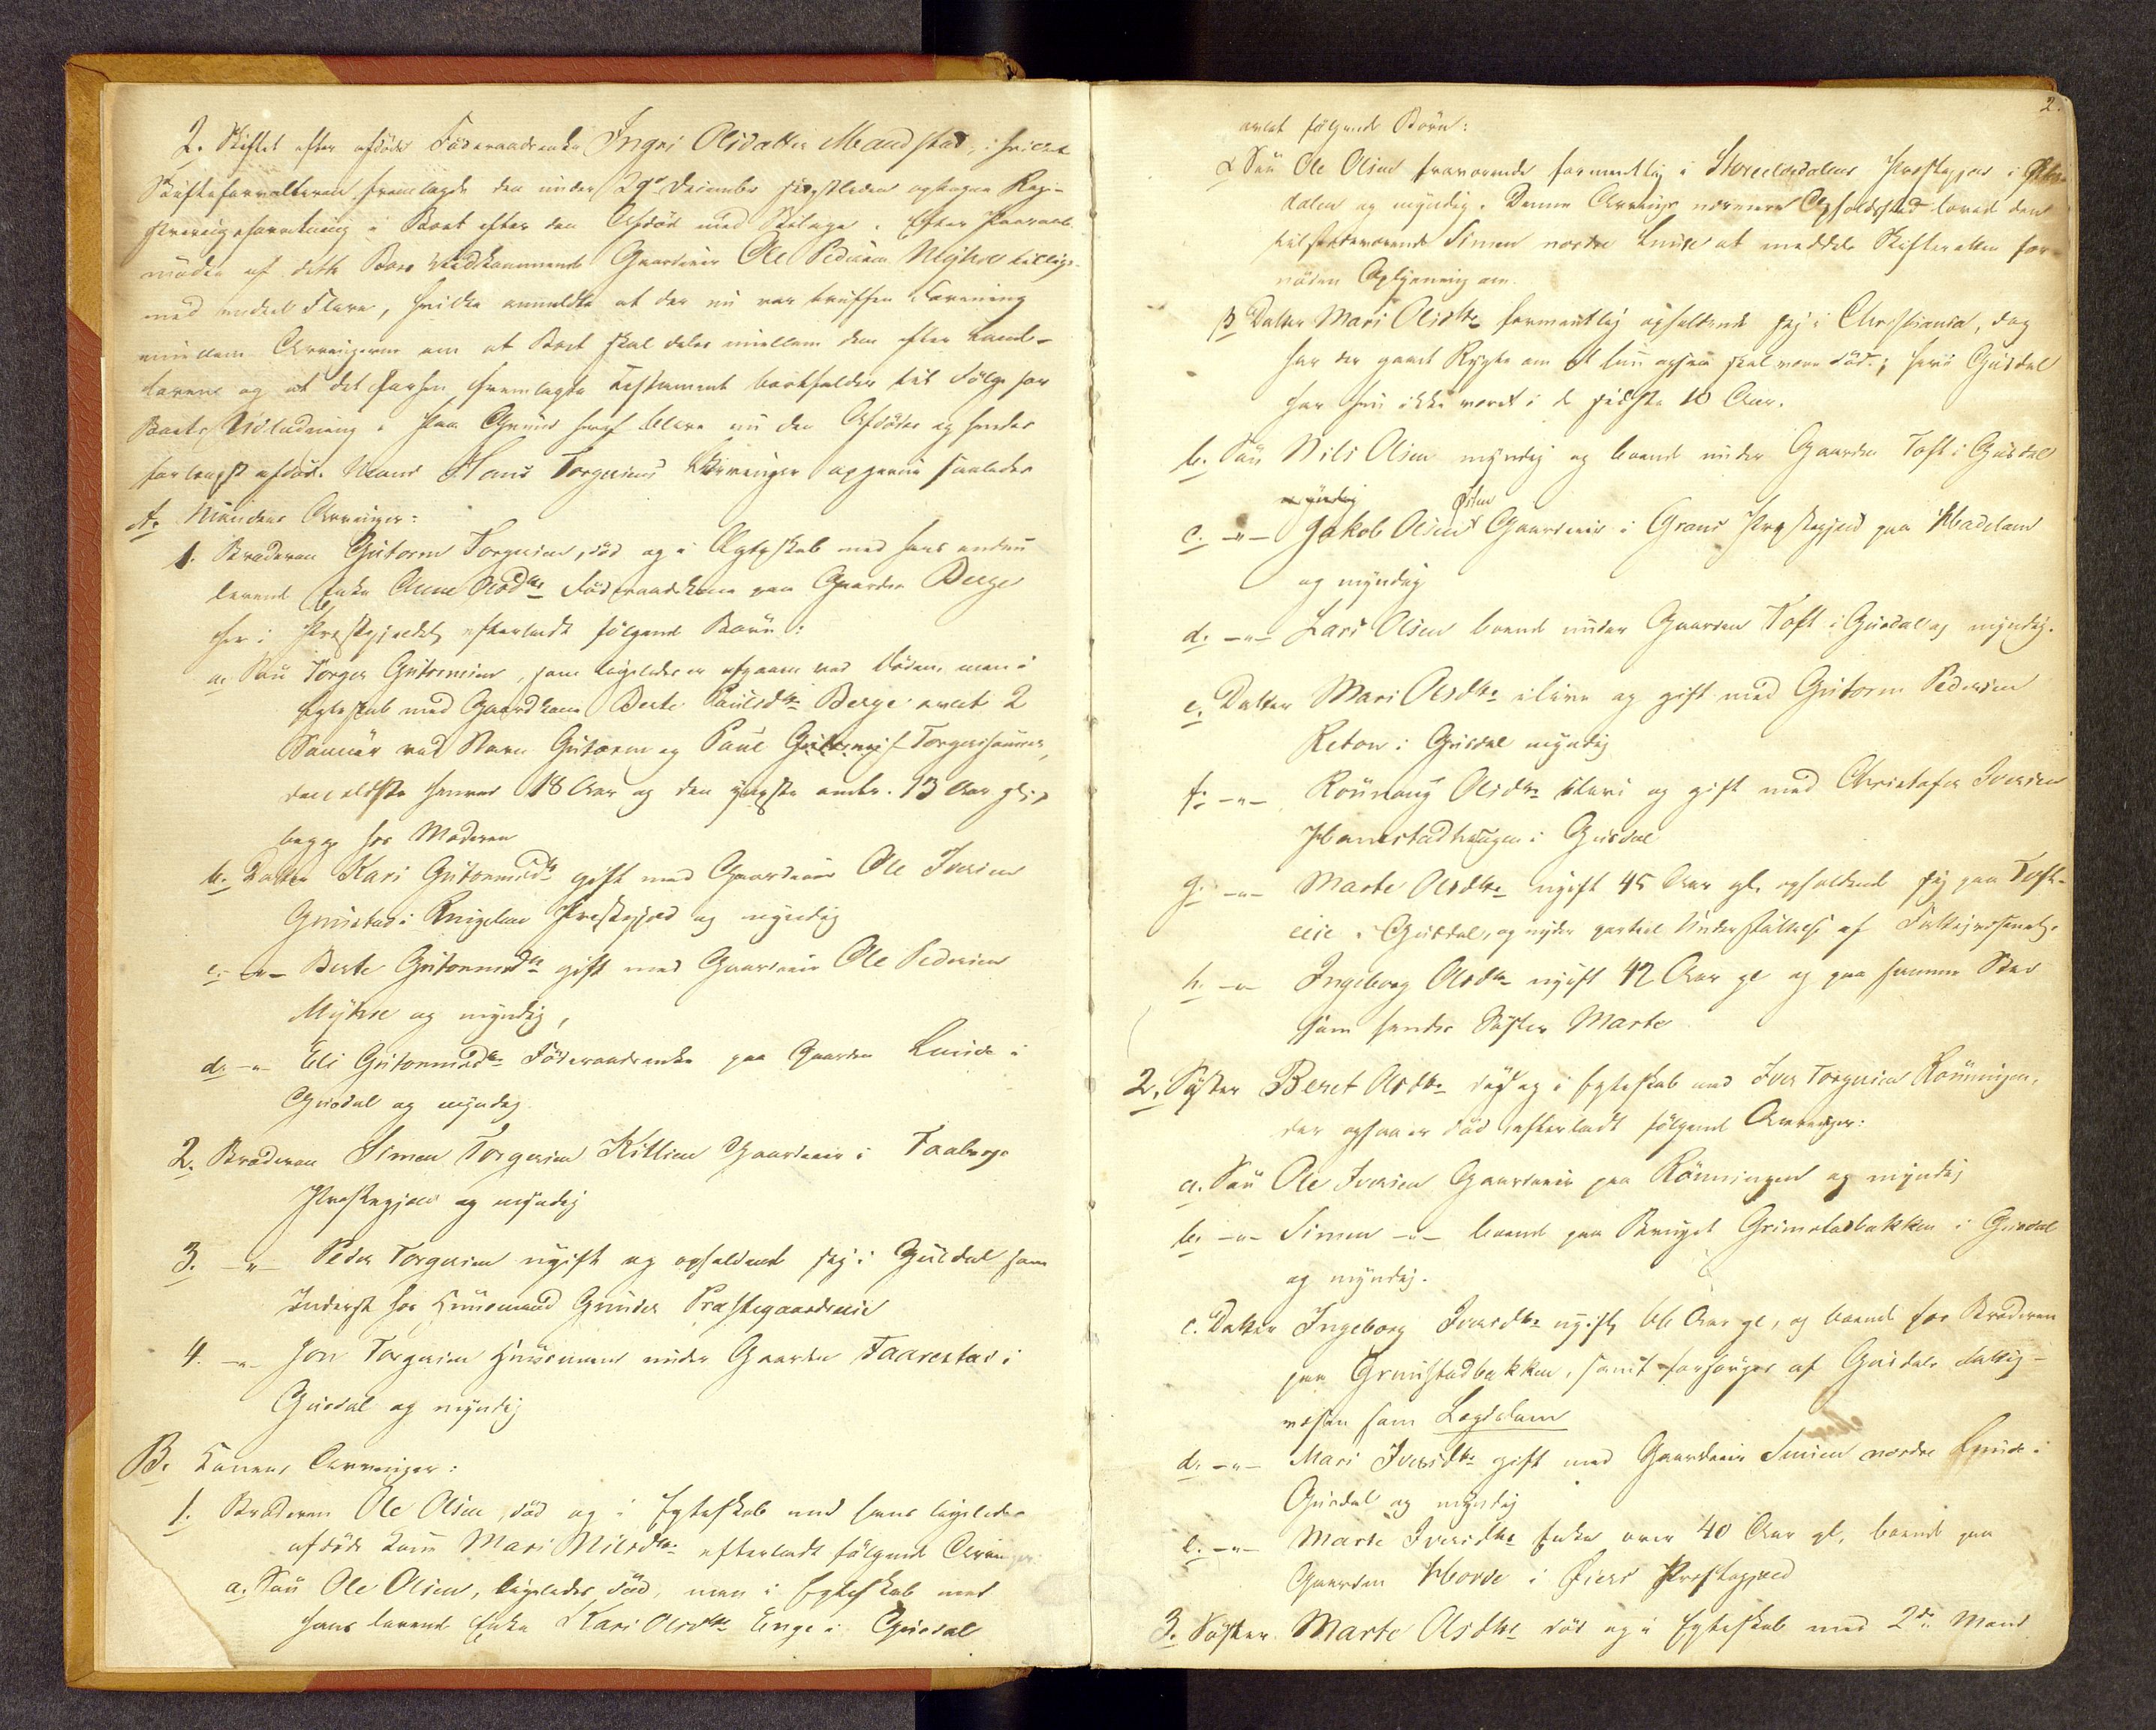 2. Skiftet efter afdøde Føderaadsenke Ingri Olsdatter Maudstad, i hvilket
Skifteforvalteren fremlagde den under 29de December sidstleden optagne Regi-
streringsforretning i Boet efter den Afdøde med Bilage. Efter
møder af dette Boes Vedkommende Gaardeier Ole Pedersen Myhre tillige-
med endeel Flere, hvilke anmeldte at der nu var truffen Forening
mellem Arvingerne om at Boet skal deles imellem dem efter Land-
lovene og at det forhen fremlagte Testament bortfalder til Følge for
Boets Udlodning. Paa Grund heraf bleve nu den Afdødes og hendes
forlængst afdøde Mand Hans Torgersens Arvinger opgivne saaledes
A. Mandens Arvinger:
1. Broderen Gutorm Torgersen, død og i Ægteskab med hans endnu
levende Enke Anne Olsdtr Føderaadskone paa Gaarden Berge
her i Præstegjeldet efterladt følgende Børn:
a. Søn Torger Gutormsen, som ligeledes er afgaaen ved Døden, men i
Egteskab med Gaardkone Berte Paulsdtr Berge avlet 2
Sønner ved Navn Gutorm og Paul Torgerssønner,
den ældste henved 18 Aar og den yngste omtr. 13 Aar gl.,
begge hos Moderen
b. Datter Kari Gutormsdtr gift med Gaardeier Ole Iversen
Grimstad i Ringebu Præstegjeld og myndig
c. -"- Berte Gutormsdtr gift med Gaardeier Ole Pedersen
Myhre og myndig,
d. -"- Eli Gutormsdtr Føderaadsenke paa Gaarden Lunde i
Gusdal og myndig
2. Broderen Simen Torgersen Killien Gaardeier i Faaberg
Præstegjeld og myndig
3. -"- Peder Torgersen ugift og opholdende sig i Gusdal som
Inderst hos Huusmand Gunder Præstegaardseie
4. -"- Jon Torgersen Huusmand under Gaarden Faarestad i
Gusdal og myndig
B. Konens Arvinger:
1. Broderen Ole Olsen, død og i Egteskab med hans ligeledes
afdøde Kone Mari Nilsdtr efterladt følgende Arvinger:
a. Søn Ole Olsen, ligeledes død, men i Egteskab med
hans levende Enke Kari Olsdtr Enge i Gusdal
2.
avlet følgende Børn:
α Søn Ole Olsen fraværende formentlig i Storelvedalens Præstegjeld i Øster-
dalen og myndig. Denne Arvings nærmere Opholdssted lovede den
tilstedeværende Simen nordre Lunde at meddele Skifteretten for-
nøden Oplysning om.
β Datter Mari Olsdtr formentlig opholdende sig i Christiania, dog
har der gaaet Rygte om at hun ogsaa skal være død; hos Gusdal
har hun ikke været i de sidste 10 Aar.
b. Søn Nils Olsen myndig og boende under Gaarden Toft i Gusdal
myndig
c. -"- Jakob Olsen Gaardeier i Grans Præstegjeld paa Hadeland
og myndig
d. -"- Lars Olsen boende under Gaarden Toft i Gusdal og myndig.
e. Datter Mari Olsdtr ilive og gift med Gutorm Pedersen
i Gusdal myndig
f. -"- Rønnaug Olsdtr ilive og gift med Christofer Iversen
i Gusdal
g. -"- Marte Olsdtr ugift 45 Aar gl. opholdende sig paa Toft-
eie i Gusdal, og nyder partiel Understøttelse af Fattigvæsenet.
h. -"- Ingeborg Olsdtr ugift 42 Aar gl og paa samme Sted
som hendes Søster Marte
2. Søster Beret Olsdtr død og i Egteskab med Iver Torgersen Rønningen,
der ogsaa er død, efterladt følgende Arvinger:
a. Søn Ole Iversen Gaardeier paa Rønningen og myndig
b. -"- Simen -"- boende paa Bruget Grimstadbakken i Gusdal
og myndig.
c. Datter Ingeborg Iversdtr ugift, 66 Aar gl, og boende hos Broderen
paa Grimstadbakken, samt forsørges af Gusdals Fattig-
væsen som Lægdslem
d. -"- Mari Iversdtr gift med Gaardeier Simen nordre Lunde i
Gusdal og myndig
e. -"- Marte Iversdtr Enke over 40 Aar gl. boende paa
Gaarden i Øiers Præstegjeld
3. Søster Marte Olsdtr død og i Egteskab med 2den Mand